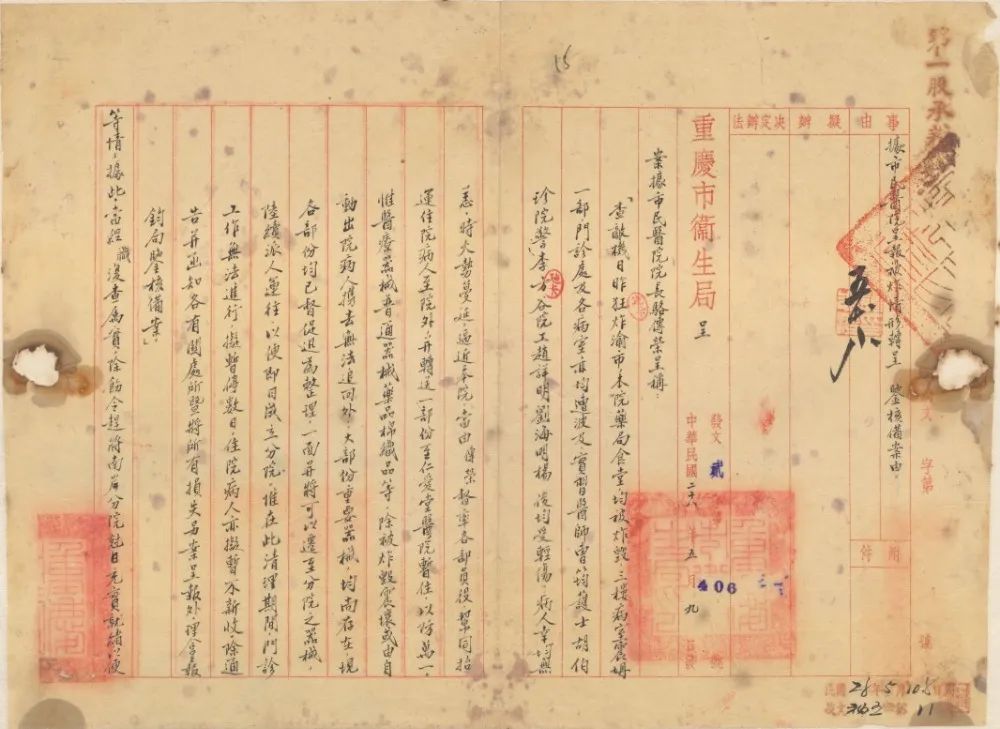 15
第一股承辦
事由
擬辦
決定辦法
附件
字第
號
據市民醫院呈報被炸情形轉呈 鑒核備案由。
重慶市衛生局 呈
發文 貳
406
中華民國二十八年五月九日
案據市民醫院院長駱傳榮呈稱：
「查敵機日昨狂炸渝市，本院藥局食堂均被炸毀，三樓病室震坍
一部，門診處及各病室亦均遭波及，實習醫師曾筠、護士胡伯
診、院警李方谷、院工趙詳明、劉海明、楊 均受輕傷，病人幸均無
恙，時火勢蔓延，逼近本院，當由傳榮督率各部員役，幫同抬
運住院病人至院外，并轉送一部份至仁愛堂醫院暫住，以防萬一，
惟醫療器械普通器械藥品棉織品等，除被炸毀震壞或由自
動出院病人攜去無法追回外，大部份重要器械，均尚存在，現
各部份均已督促迅為整理，一面并將可以遷至分院之器械，
陸續派人運往，以便即日成立分院，惟在此清理期間，門診
工作無法進行，擬暫停數日，住院病人亦擬暫不新收，除通
告并函知各有關處所暨將所有損失另案呈報外，理合呈報
鈞局鑒核備案。」
等情，據此，當經職復查屬實，除飭令趕將南岸分院尅日充實就緒，以便
28年5月10日
11